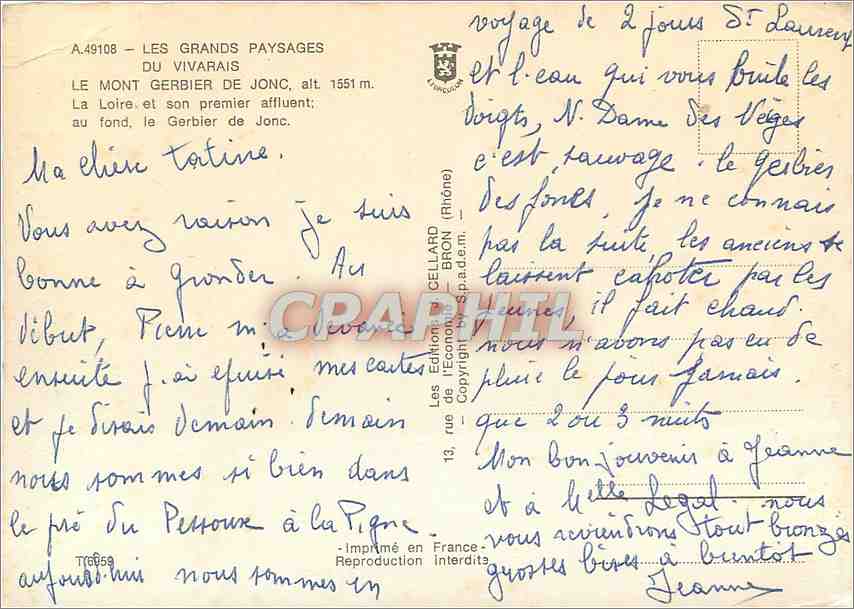 A.49108 - LES GRANDS PAYSAGES
DU VIVARAIS
LE MONT GERBIER DE JONC, alt. 1551 m.
La Loire et son premier affluent;
au fond, le Gerbier de Jonc.
Ma chère tatine.
Vous avez raison je suis
bonne à gronder. Au
début, Pierre m'a devancée
ensuite j'ai épuisé mes cartes
et je disais demain. demain
nous sommes si bien dans
le pré du Pessoux à la Pigne
aujourd'hui nous sommes en
T(6959
voyage de 2 jours St Laurent
et l'eau qui vous brûle les
doigts, N. Dame des Neiges
c'est sauvage. le gerbier
des joncs, je ne connais
pas la suite, les anciens se
laissent capoter par les
jeunes, il fait chaud.
nous n'avons pas eu de
pluie le jour Jamais.
que 2 ou 3 nuits
Mon bon souvenir à Jeanne
et à Melle Legal. nous
vous reviendrons tout bronzés
grosses bises à bientôt
Jeanne
13, rue de l'Economie - BRON (Rhône)
Les Editions J. CELLARD
- Copyright by S.p.a.d.e.m. -
-Imprimé en France-
Reproduction interdite
CPAPHIL